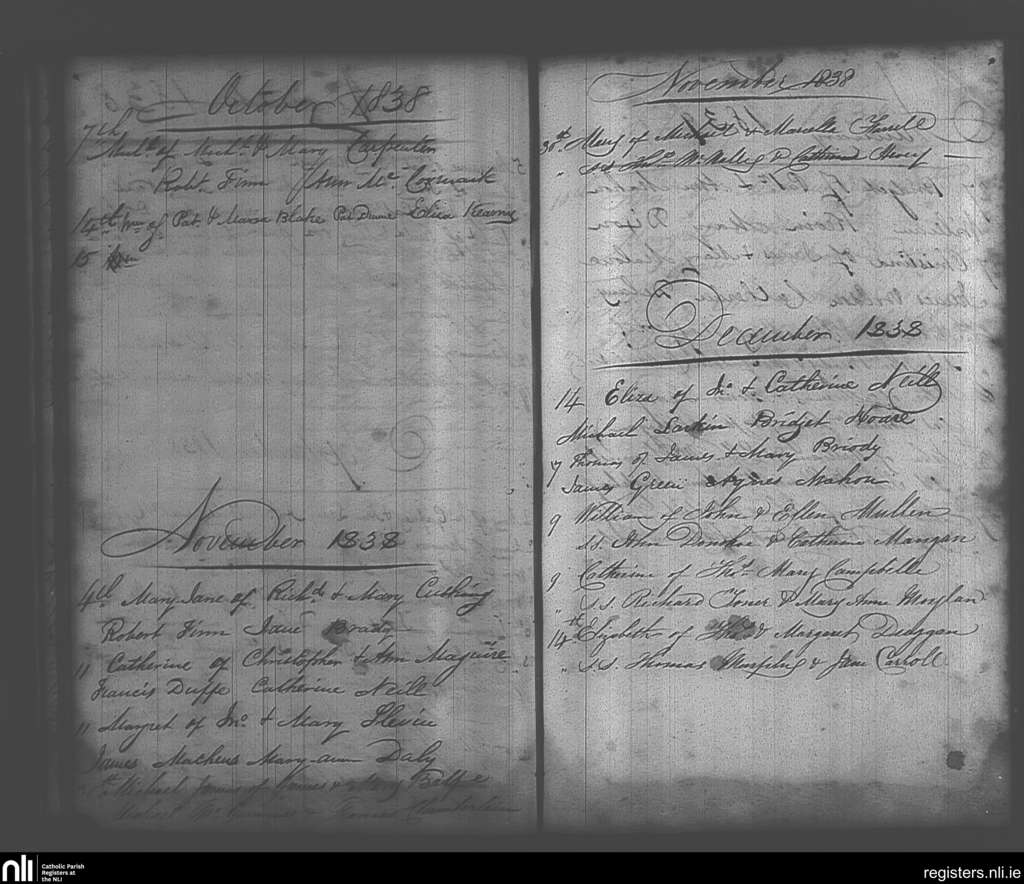 October 1838
7th
Michl. of Michl. & Mary Carpenter
Robt. Finn Ann Mc.
14th Wm of Pat. & Maria Blake Pat Dunne Eliza Kearny
15
November 1838
4th Mary Jane of Richd. & Mary Cushing
Robert Finn Jane Brady
11 Catherine of Christopher & Ann Maguire
Francis Duffe Catherine Neill
11 Margret of Jno. & Mary Slevin
James Mathews Mary-ann Daly
Michael James of James & Mary
Michael Chamberlain
November 1838
30th Mary of Michael & Marcella Farrell
" ss Thos. McNally & Catherine
December 1838
14 Eliza of Jno. & Catherine Neill
Michael Larkin Bridget Hoare
7 Thomas of James & Mary Briody
James Green Agnes Mahon
9 William of John & Ellen Mullen
ss. John Donohoe & Catherine Mangan
9 Catherine of Thos. Mary Campbell
" ss. Richard Toner & Mary Anne Moylan
14th Elizabeth of Thos. & Margaret Deaggan
" ss. Thomas Murphy & Jane Carroll
nli
Catholic Parish
Registers at
the NLI
registers.nli.ie